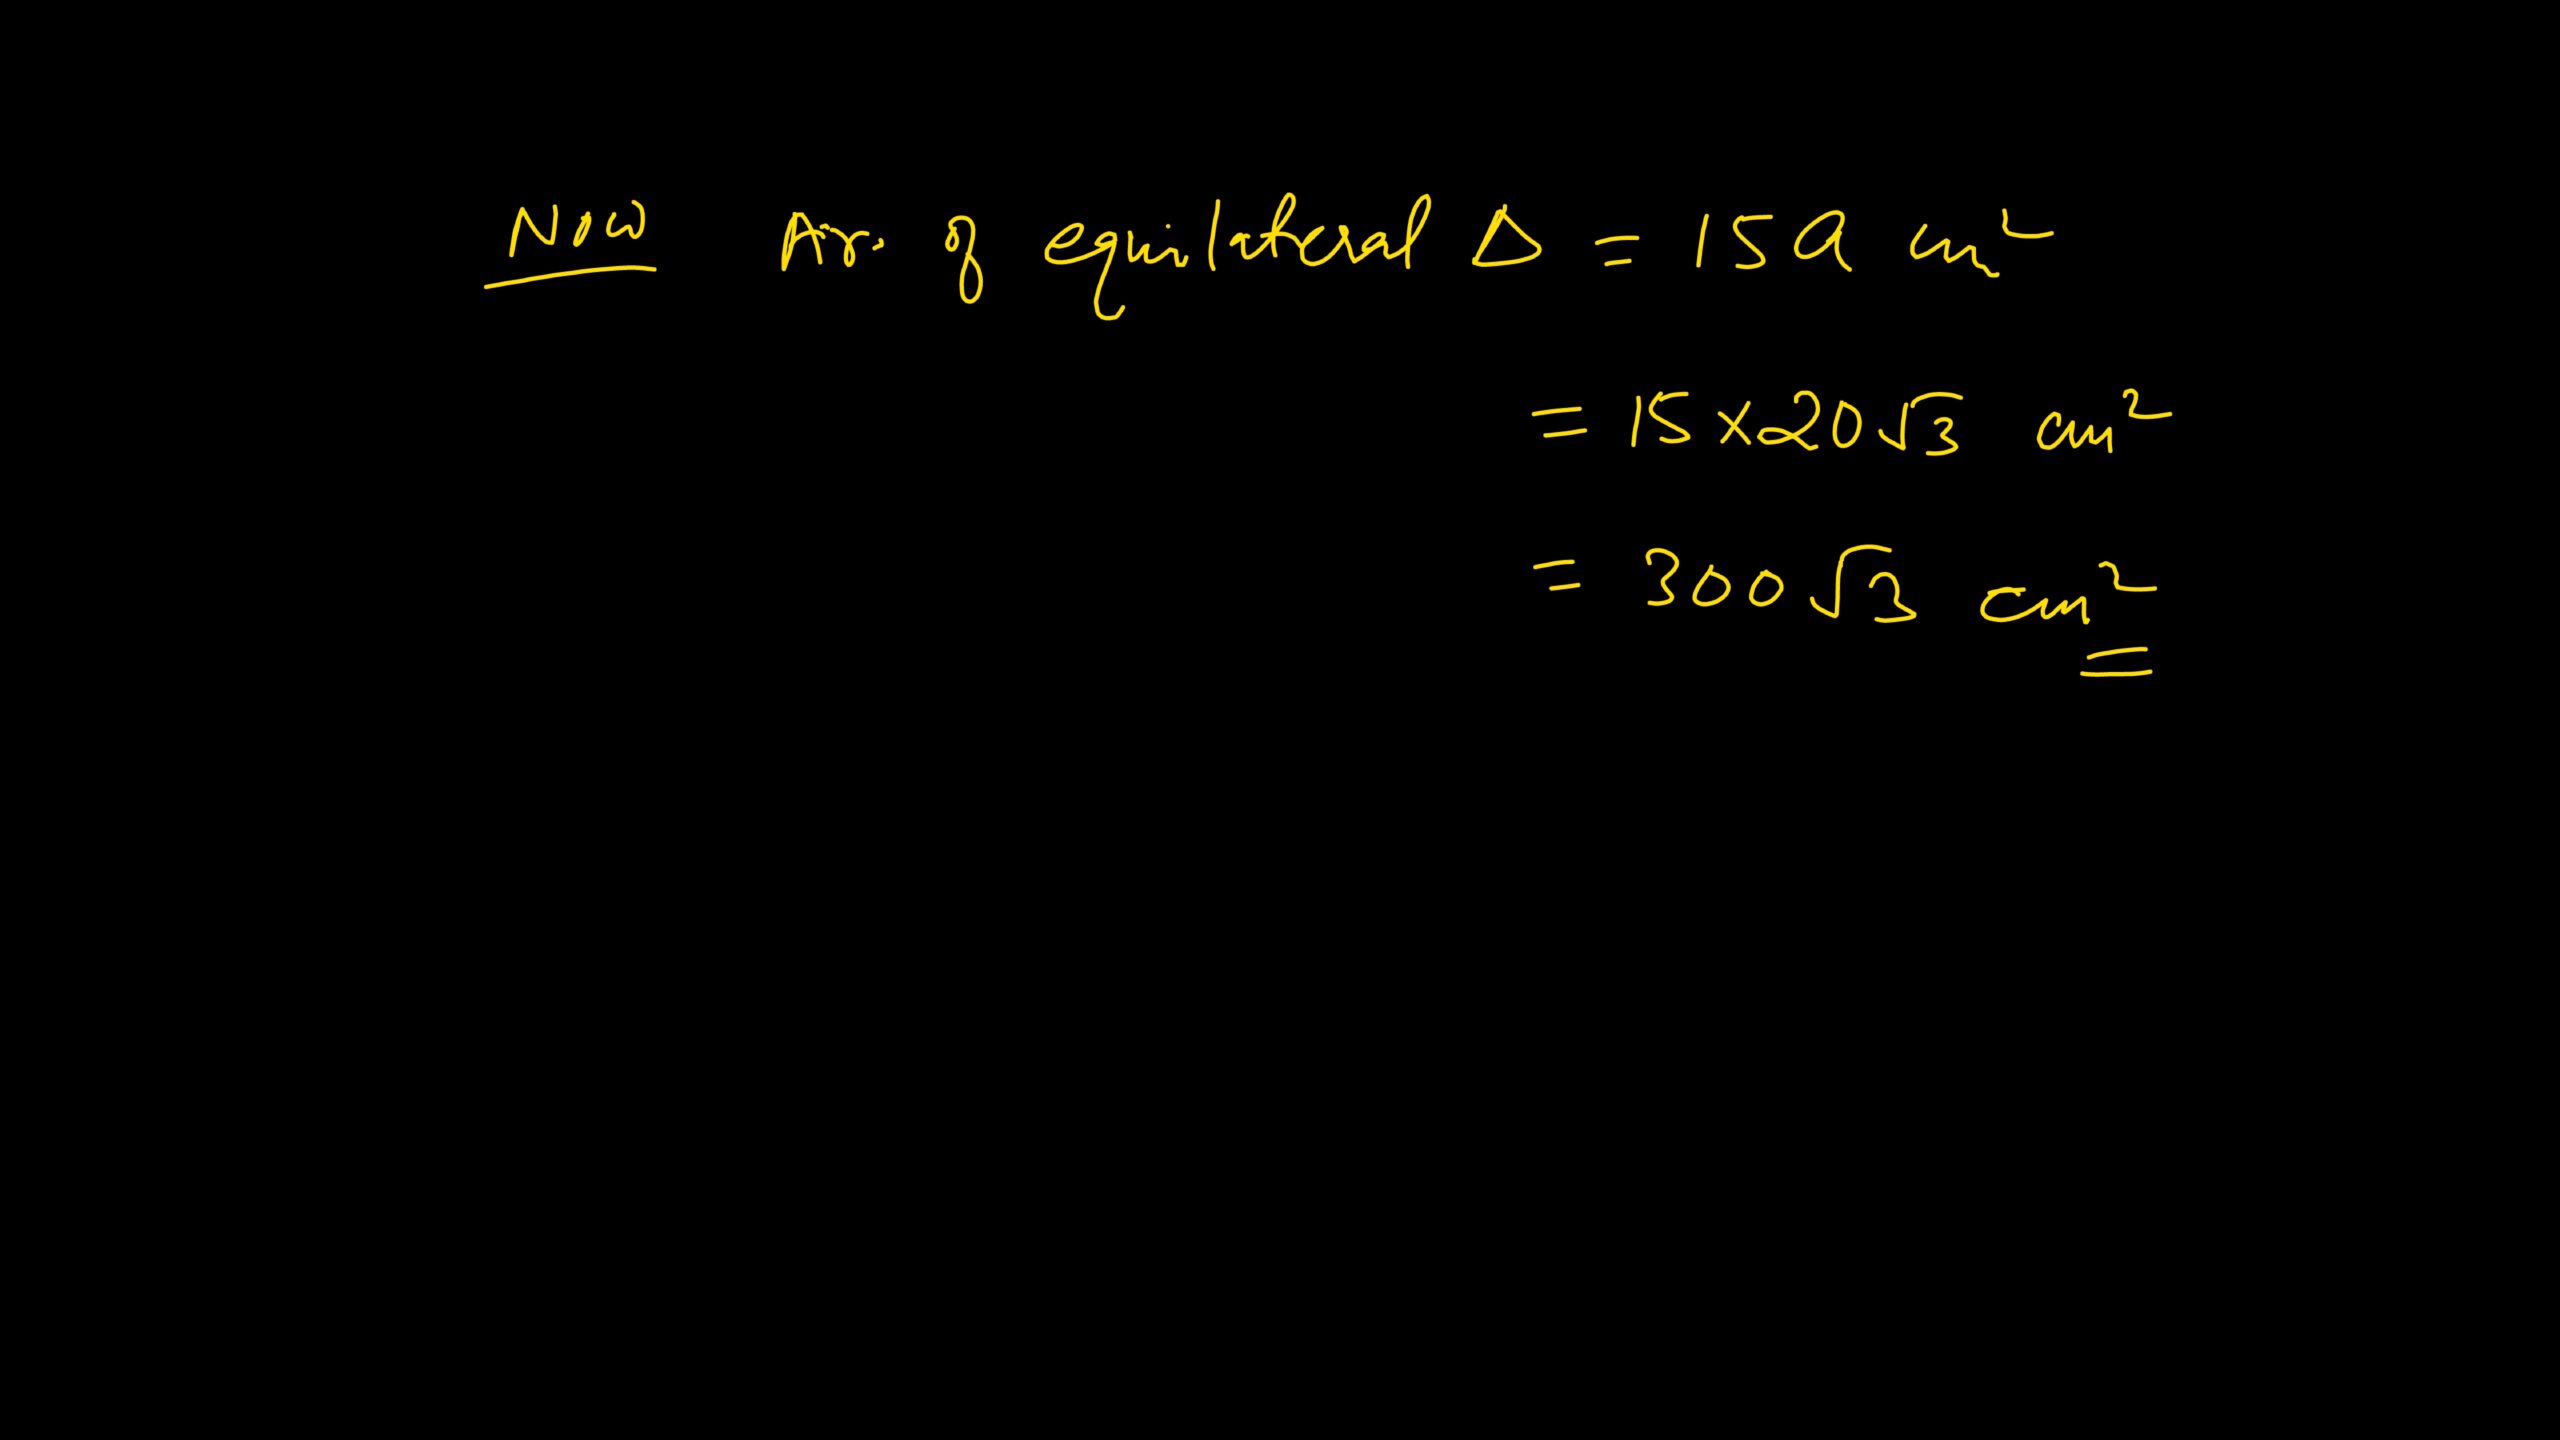 Now Ar. of equilateral Δ = 15a cm²
= 15 × 20√3 cm²
= 300√3 cm²